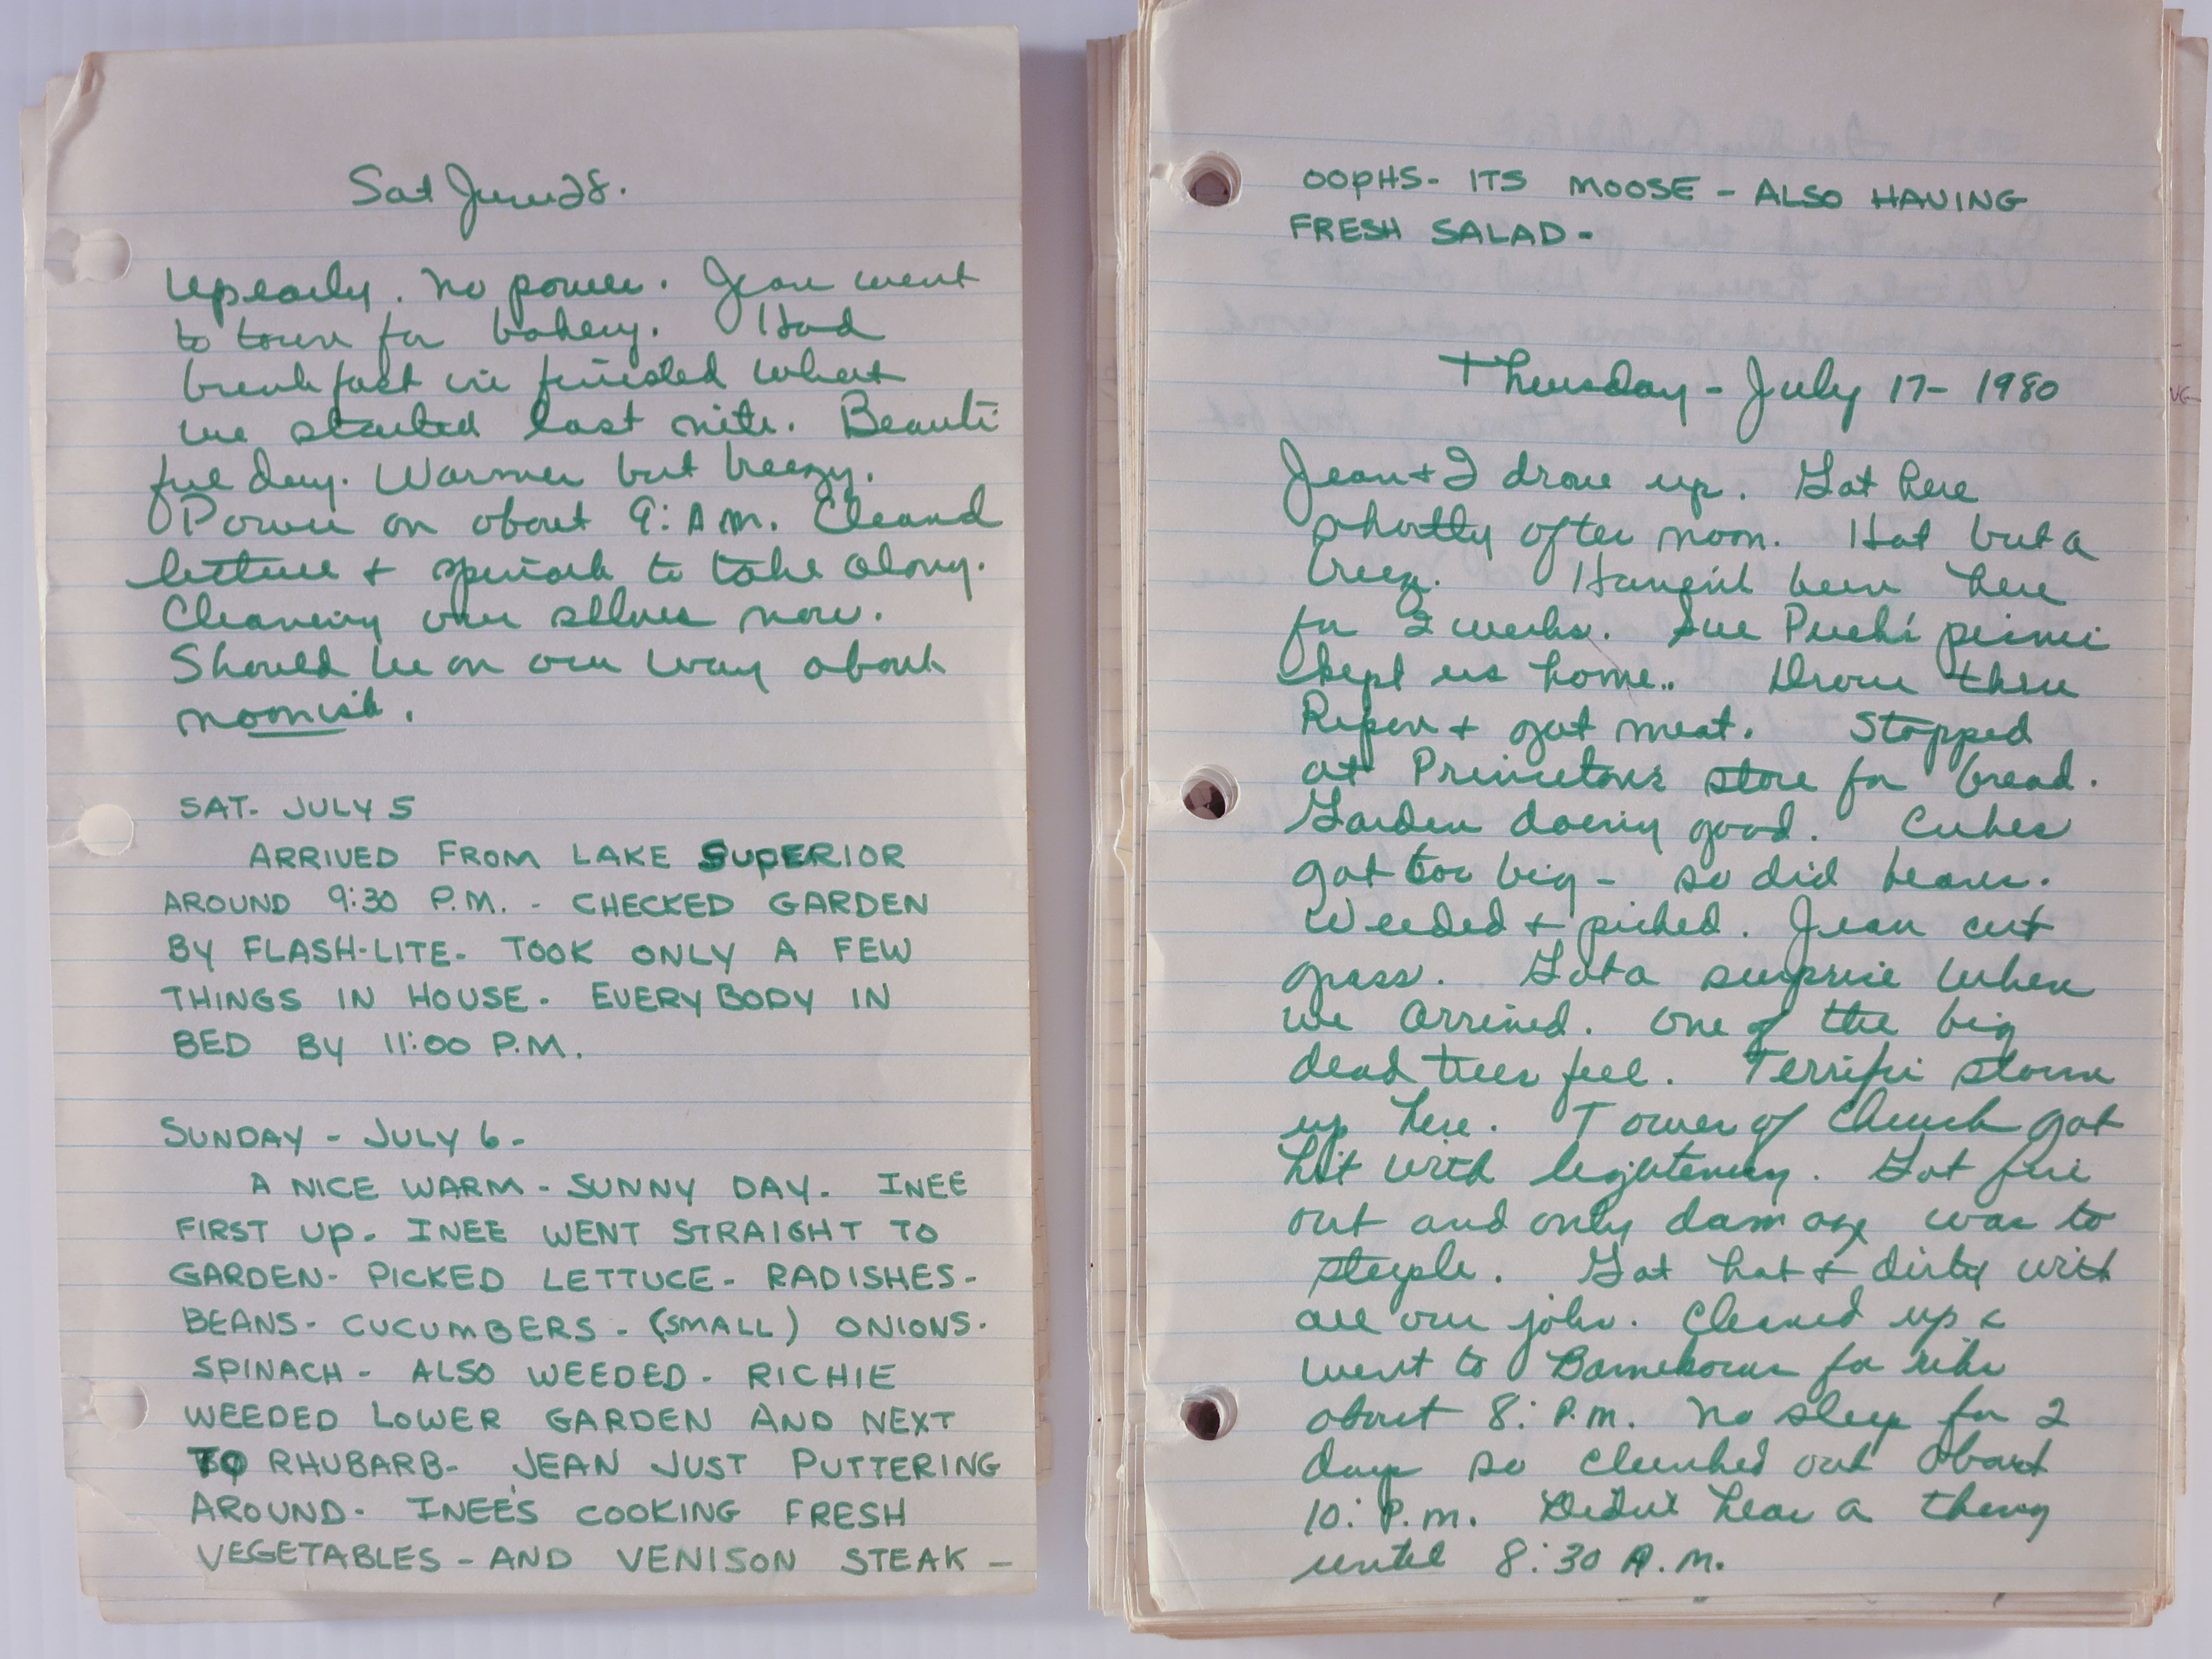 Sat June 28.
Up early. No power. Jean went
to town for bakery. Had
breakfast we finished what
we started last nite. Beauti
ful day. Warmer but breezy.
Power on about 9: A.M. Cleand
lettuce + spinach to take along.
Cleaning our sllves now.
Should be on our way about
noonish.
SAT. JULY 5
ARRIVED FROM LAKE SUPERIOR
AROUND 9:30 P.M. - CHECKED GARDEN
BY FLASH-LITE- TOOK ONLY A FEW
THINGS IN HOUSE - EVERYBODY IN
BED BY 11:00 P.M.
SUNDAY - JULY 6 -
A NICE WARM - SUNNY DAY - INEE
FIRST UP - INEE WENT STRAIGHT TO
GARDEN - PICKED LETTUCE - RADISHES -
BEANS - CUCUMBERS - (SMALL) ONIONS -
SPINACH - ALSO WEEDED - RICHIE
WEEDED LOWER GARDEN AND NEXT
TO RHUBARB - JEAN JUST PUTTERING
AROUND - INEE'S COOKING FRESH
VEGETABLES - AND VENISON STEAK -
OOPHS - ITS MOOSE - ALSO HAVING
FRESH SALAD -
Thursday - July 17 - 1980
Jean + I drove up. Got here
shortly after noon. Hot but a
breeze. Haven't been here
for 2 weeks. Sue picnic
kept us home.. Drove thru
Ripon + got meat. Stopped
at Princeton's store for bread.
Garden doeing good. Cukes
got too big - so did beans.
Weeded + picked. Jean cut
grass. Got a surprise when
we arrived. One of the big
dead trees fell. Terrific storm
up here. Tower of Church got
hit with lightening. Got fire
out and only damage was to
steeple. Got hot + dirty with
all our jobs. Cleaned up &
went to for
about 8: P.M. No sleep for 2
days so clunked out about
10: P.M. Didn't hear a thing
until 8:30 A.M.